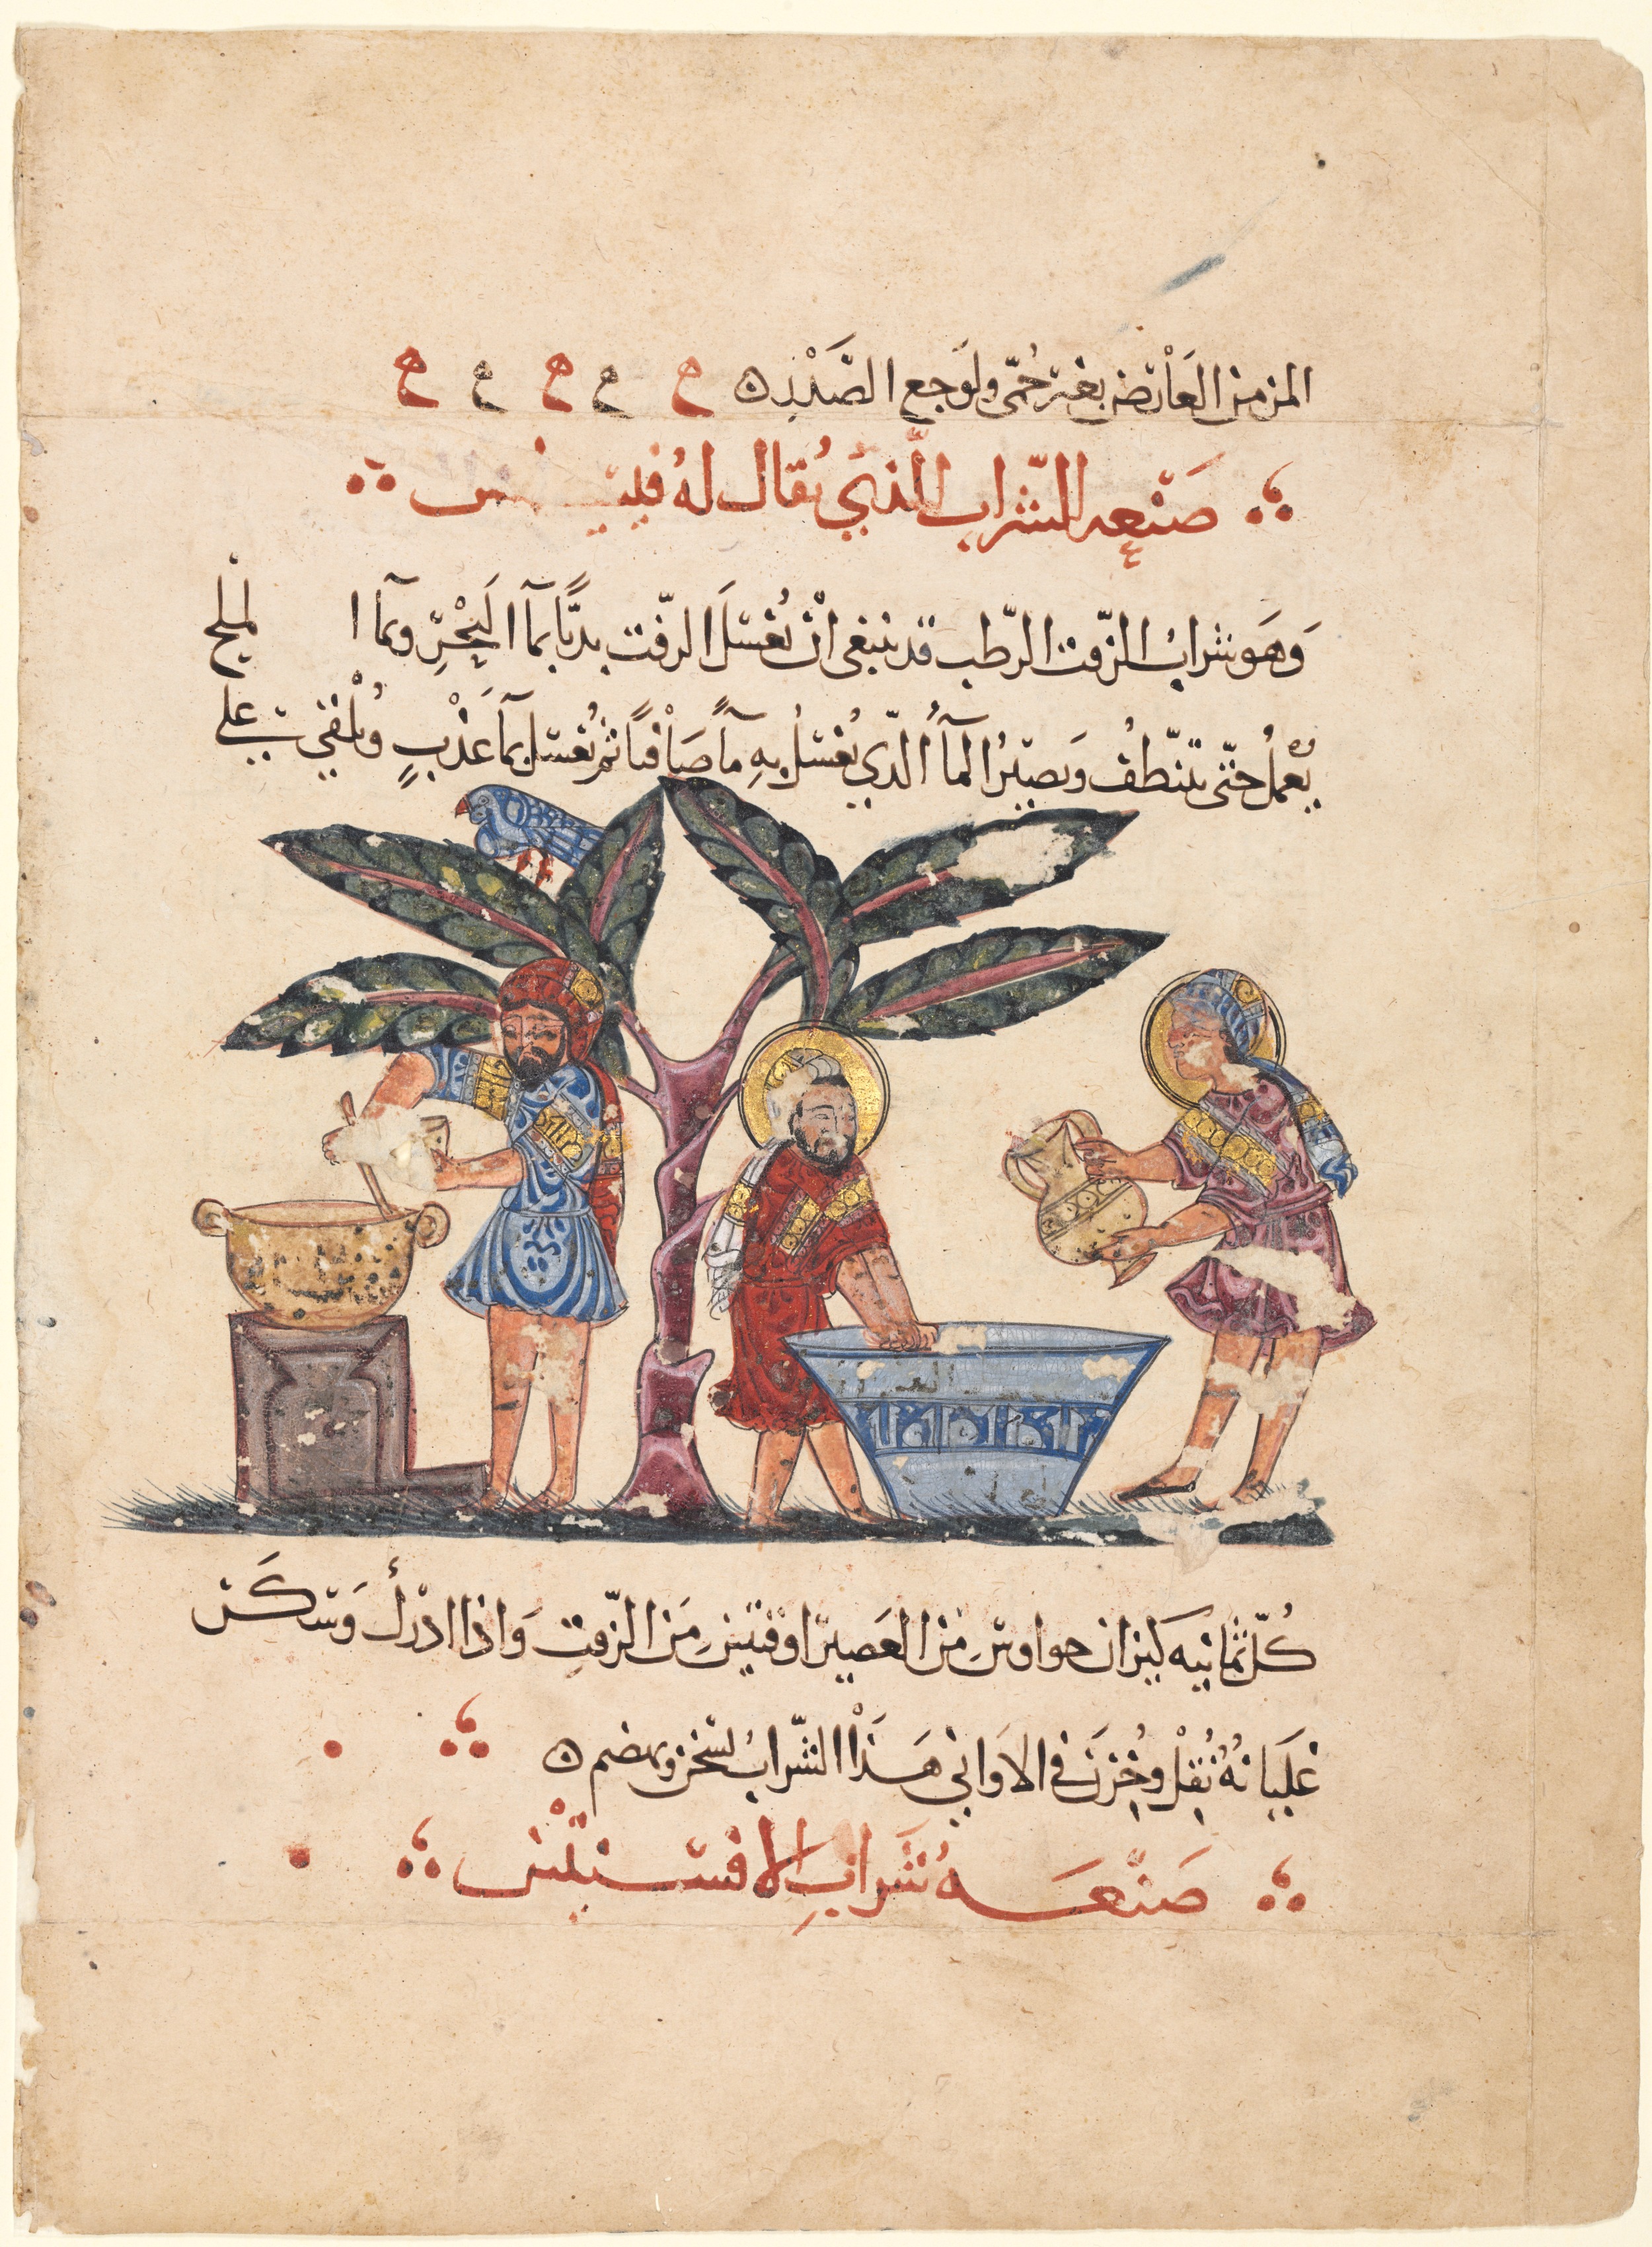 المزمن العارض بغير حمّى ولوجع الصَّدر ه م م م م م
صَنْعه الشّراب الّذي يُقال لهُ
وَهَو شرابُ الزّفت الرّطب قد ينبغي انْ يُغْسَلَ الزّفت بديًّا بمآ البَحْرِ وبمآ الملح
يُعْملُ حتّى يتنّطفُ وَيصيرُ المآأُ الّذي يُغسَلُ بهِ مآً صَاْفياً ثم يُغسَل بمآ عَذْبٍ وُيلْقى على
كُلّ ثمانيه كيزان من العَصيرِ اوقيتينِ مَن الزّفتِ وَاذا ادْركَ وَسَكَن
غَلَيانهُ نُقِلْ وخُزنَ في الاوَاني هَذَا الشّرابُ يسَخن ويهضم ه
صَنْعَه شَرابِ الافسَنتيْن